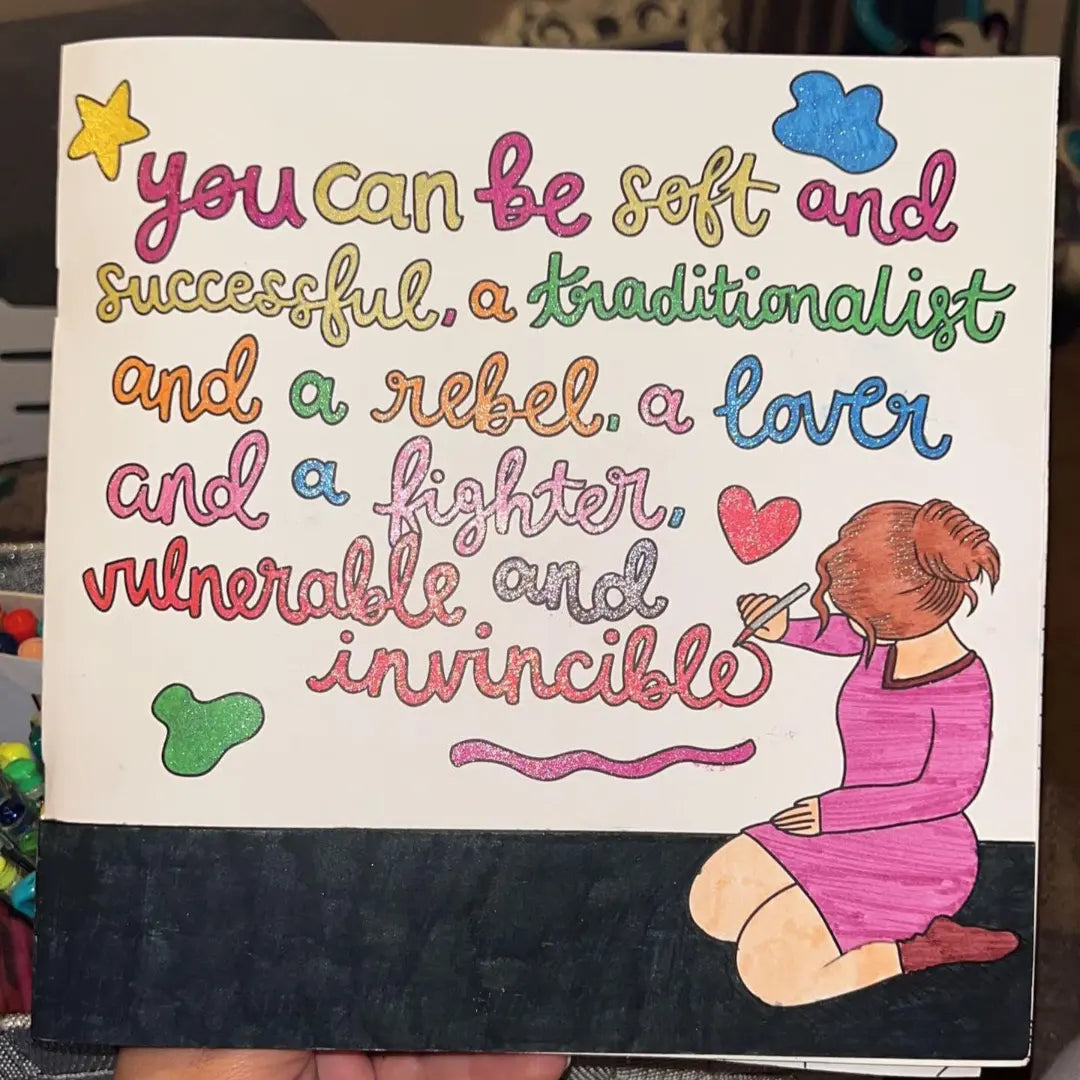 you can be soft and
successful, a traditionalist
and a rebel, a lover
and a fighter,
vulnerable and
invincible